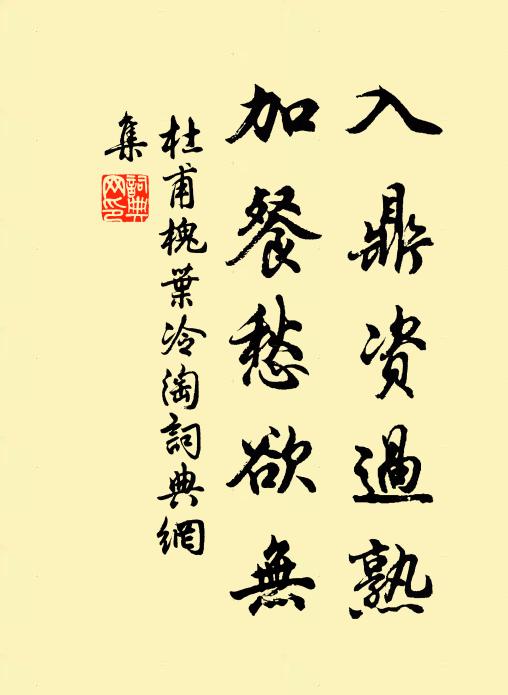 入鼎资過熟
加餐愁欲無
杜甫槐葉冷淘詞典網
集
詞典
网印